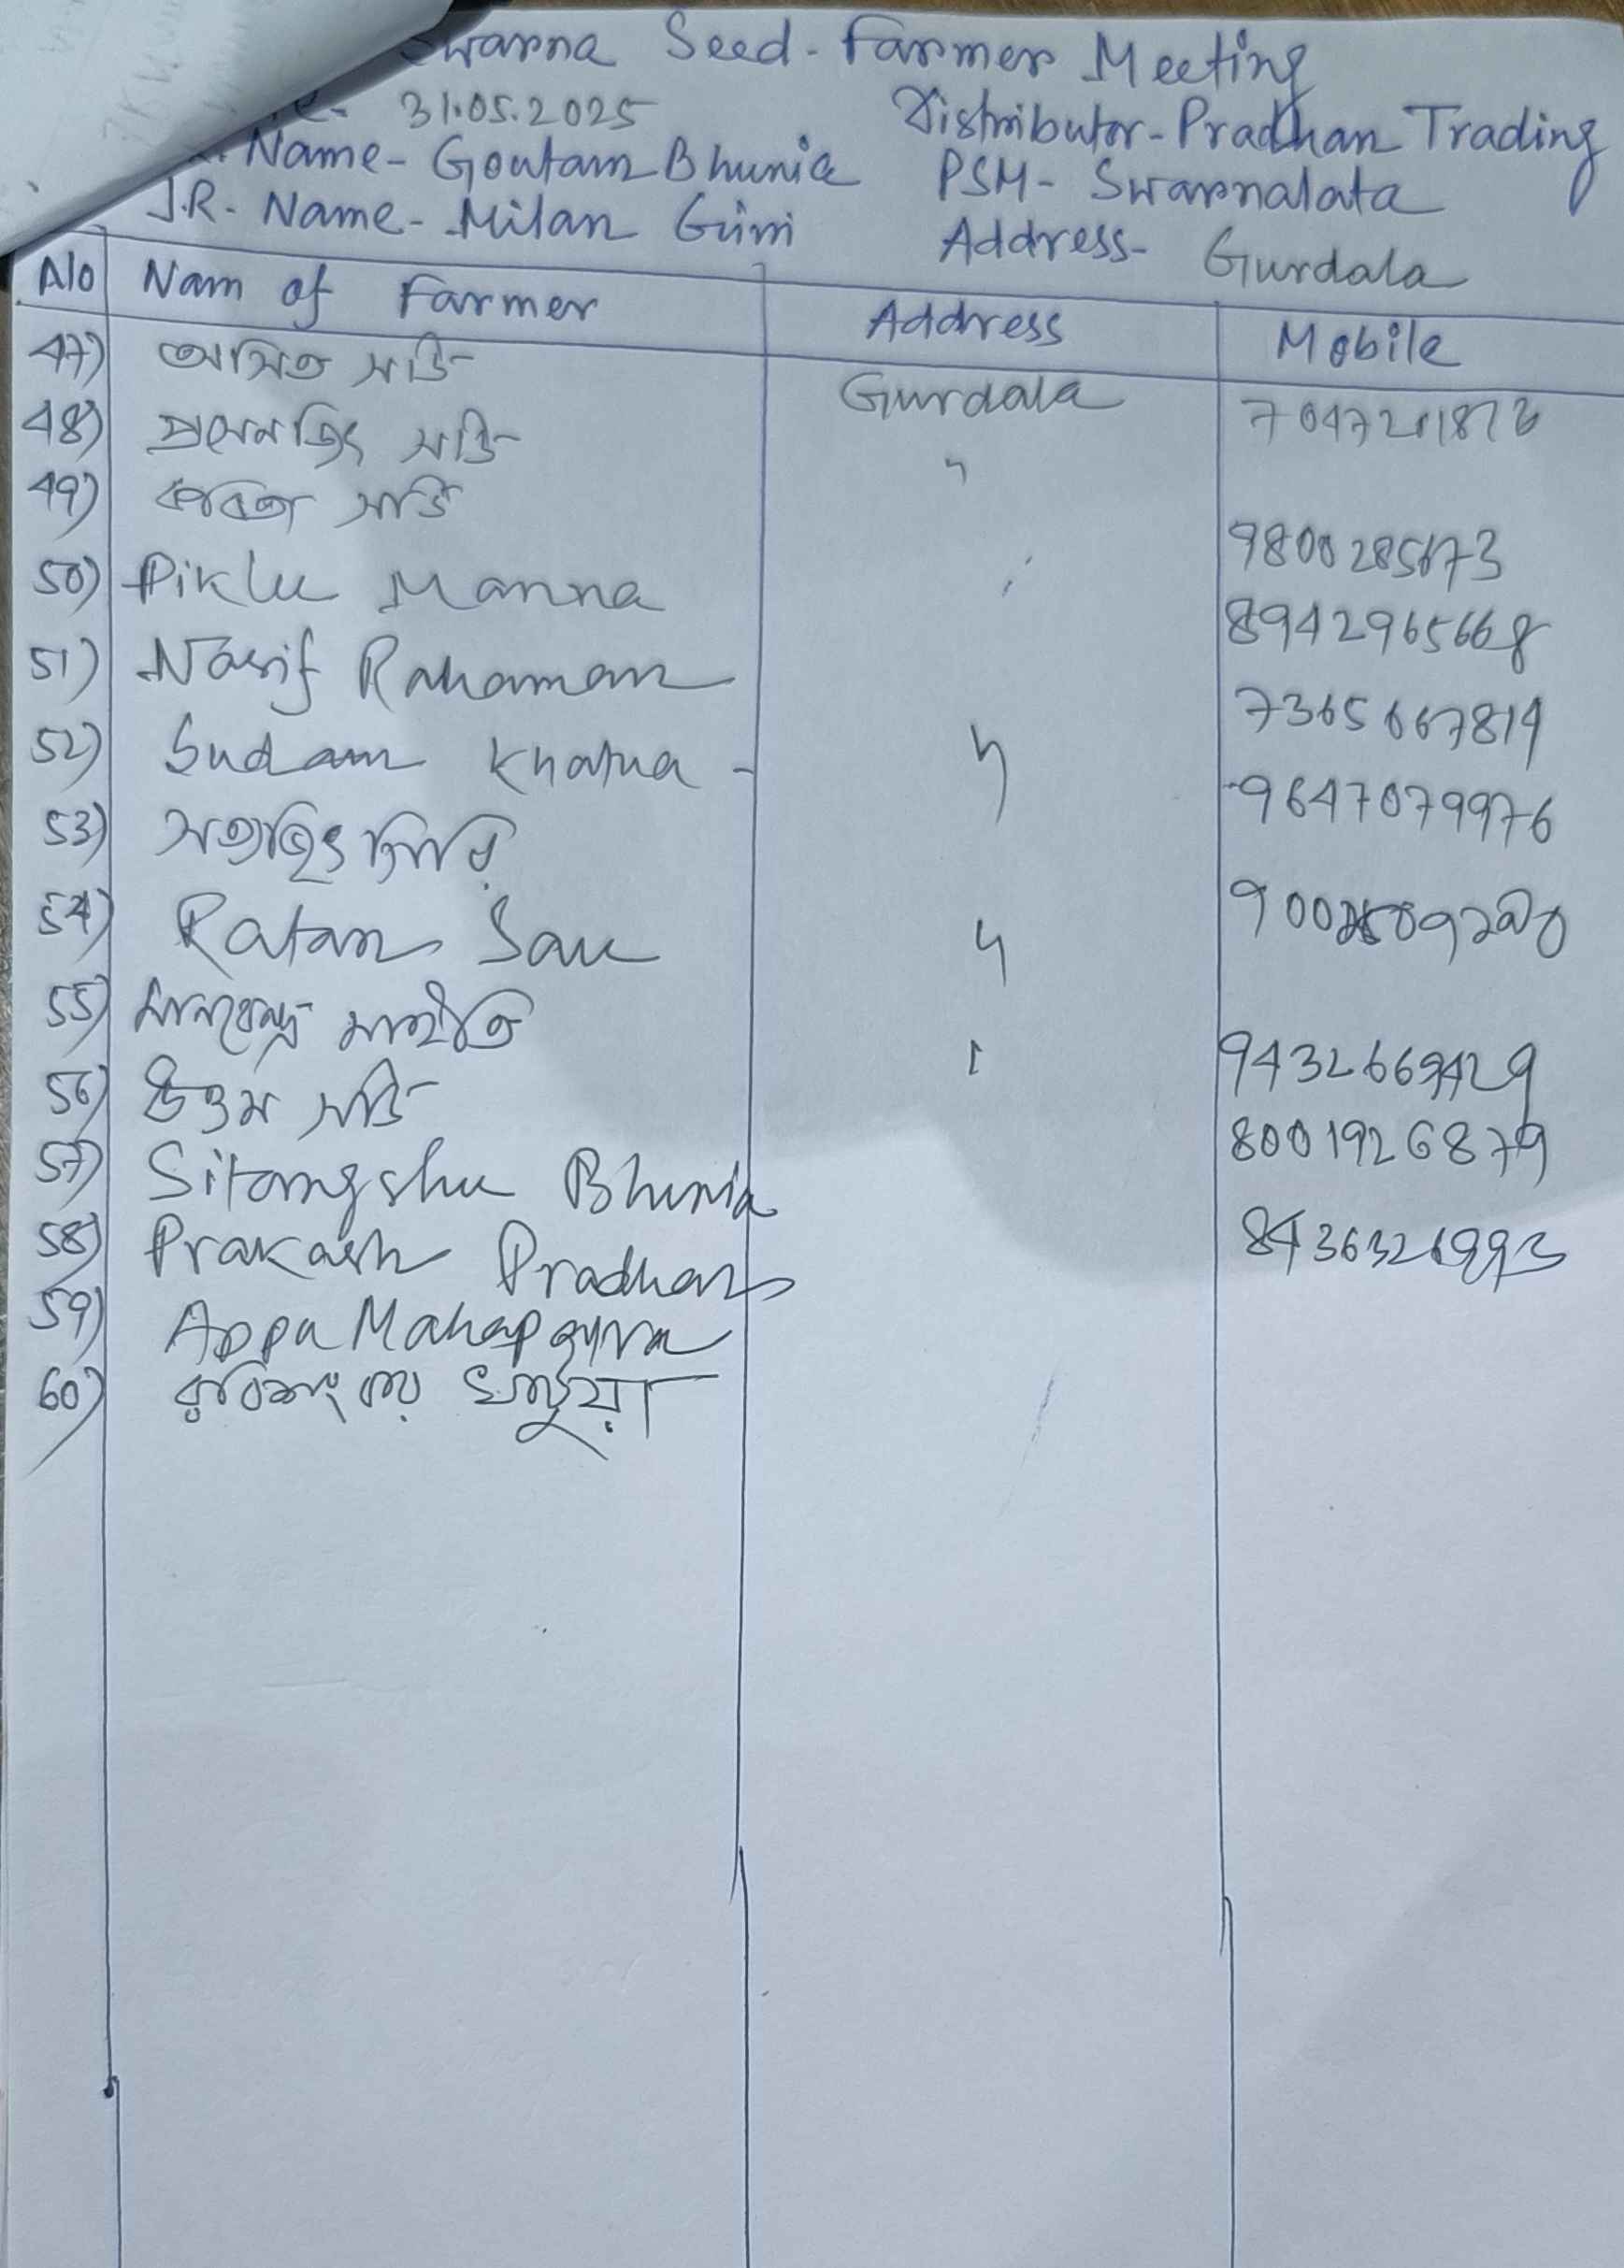 Swarna Seed-Farmer Meeting
31.05.2025 Distributor-Pradhan Trading
Name- Goutam Bhunia PSM- Swarnalata
J.R. Name- Milan Giri Address- Gurdala
No Nam of Farmer Address Mobile
47) অসিত সর্ডি Gurdala
48) প্রসেনজিৎ সর্ডি "
49) 9800285673
50) Piklu Manna " 8942965668
51) Nasif Rahaman 7365667814
52) Sudam Khatua - " 9647079976
53) সত্যজিৎ
54) Ratan Sau "
55) মাইতি 9432669429
56) উত্তম সর্ডি 8001926879
57) Sitangshu Bhunia
58) Prakash Pradhan
59) Appu Mahapatra
60)